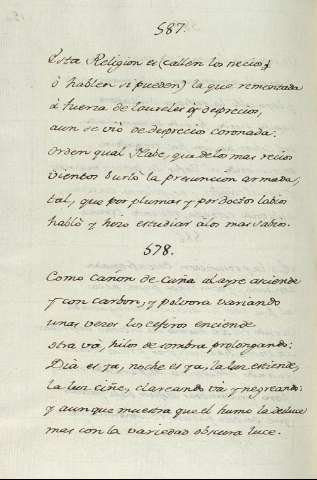 587.
Esta Religion es (callen los necios,
ò hablen si pueden) la que remontada
à fuerza de laureles y desprecios,
aun se viò de desprecios coronada.
Orden qual Nabe, que de los mas recios
vientos burlò la presuncion armada,
tal, que por plumas y por doctos labios
hablò y hizo estudiar à los mas sabios.
578.
Como cañon de Cuña al ayre asciende
y con carbon, y polvora variando
unas veces los cefiros enciende
otra và, hilos de sombra prolongando:
Dia es ya, noche es ya, la luz estiende,
la luz ciñe, clareando và y negreando:
y aunque muestra que el humo la desluce
mas con la variedad obscura luce.